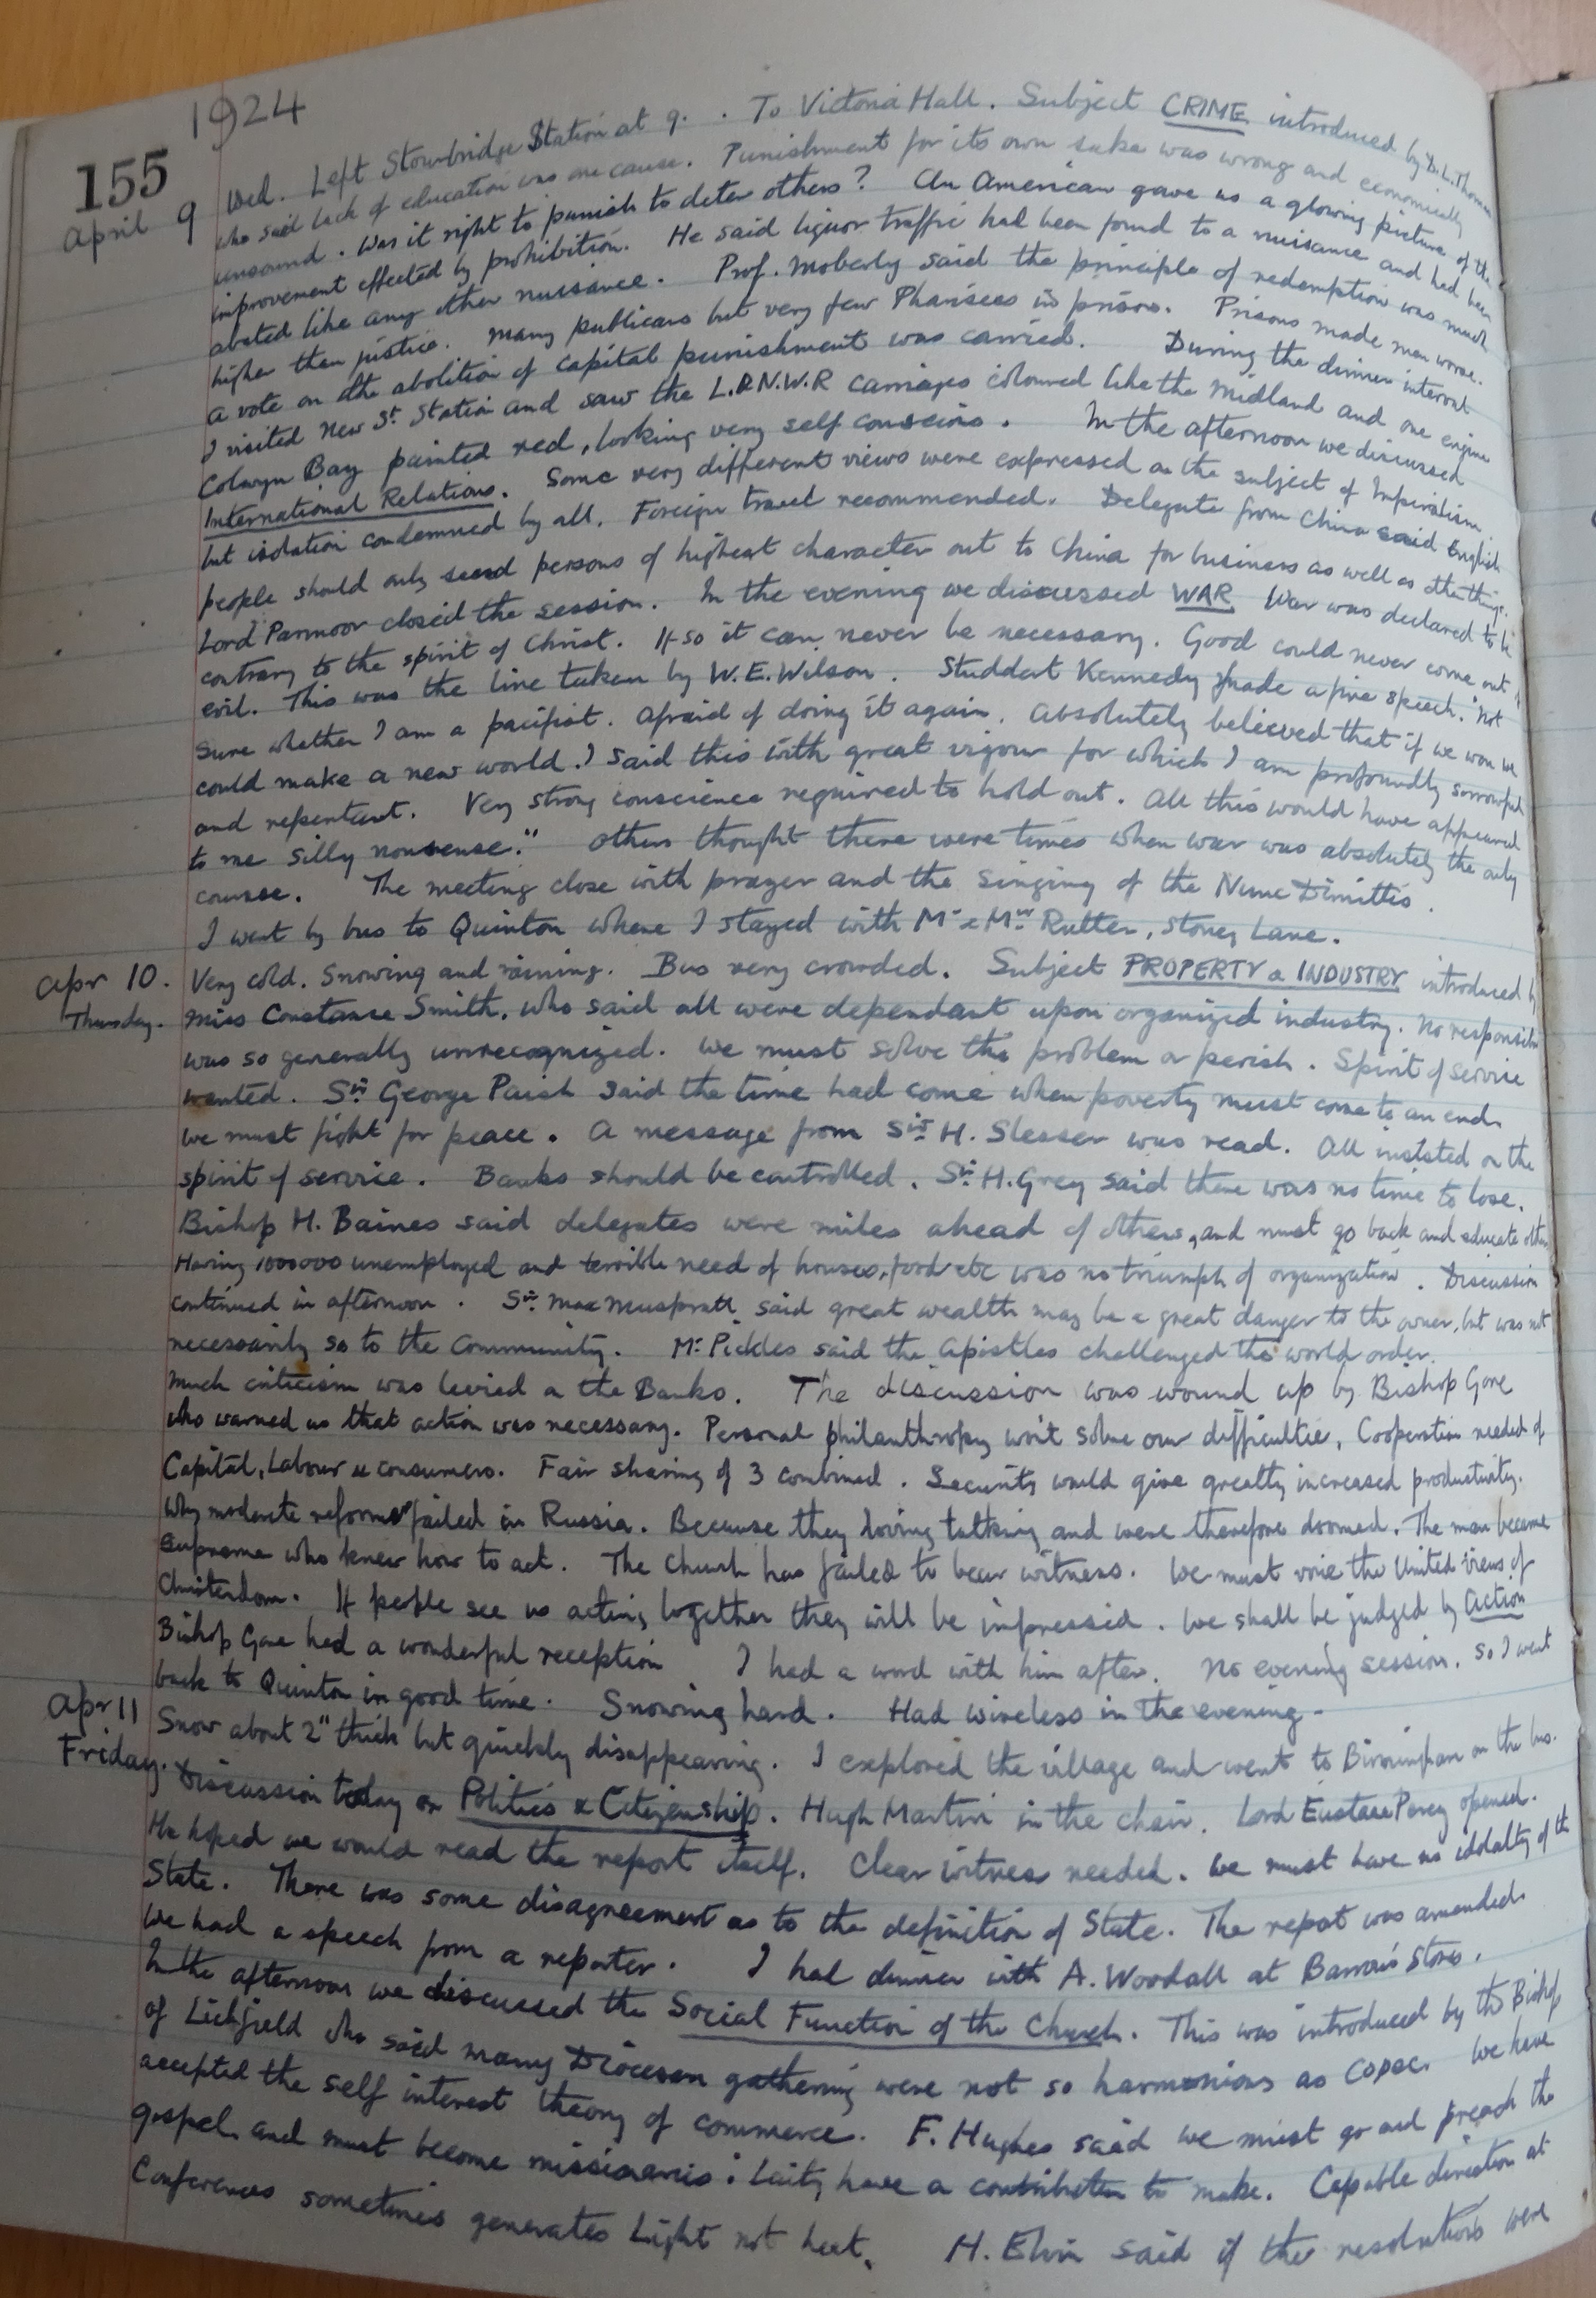 1924
155
April 9 Wed. Left Stourbridge Station at 9. . To Victoria Hall. Subject CRIME introduced by D. L. Thomas
who said lack of education was one cause. Punishment for its own sake was wrong and economically
unsound. Was it right to punish to deter others? An American gave us a glowing picture of the
improvement effected by prohibition. He said liquor traffic had been found to a nuisance and had been
abated like any other nuisance. Prof. Moberly said the principle of redemption was much
higher than justice. Many publicans but very few Pharisees in prison. Prisons made men worse.
A vote on the abolition of capital punishment was carried. During the dinner interval
I visited New St. Station and saw the L.&N.W.R carriages coloured like the Midland and one engine
Colwyn Bay painted red, looking very self conscious. In the afternoon we discussed
International Relations. Some very different views were expressed on the subject of Imperialism
but isolation condemned by all. Foreign travel recommended. Delegate from China said English
people should only send persons of highest character out to China for business as well as other things.
Lord Parmoor closed the session. In the evening we discussed WAR War was declared to be
contrary to the spirit of Christ. If so it can never be necessary. Good could never come out of
evil. This was the line taken by W.E. Wilson. Studdert Kennedy made a fine speech. "Not
sure whether I am a pacifist. Afraid of doing it again. Absolutely believed that if we won we
could make a new world. I said this with great vigour for which I am profoundly sorrowful
and repentant. Very strong conscience required to hold out. All this would have appeared
to me silly nonsense." Others thought there were times when war was absolutely the only
course. The meeting close with prayer and the singing of the Nunc Dimittis.
I went by bus to Quinton where I stayed with Mr & Mrs Rutter, Stoney Lane.
Apr 10. Very cold. Snowing and raining. Bus very crowded. Subject PROPERTY & INDUSTRY introduced by
Thursday. Miss Constance Smith, who said all were dependant upon organized industry. No responsibility
was so generally unrecognized. We must solve the problem or perish. Spirit of service
wanted. Sir George Paish said the time had come when poverty must come to an end.
We must fight for peace. A message from Sir H. Slesser was read. All insisted on the
spirit of service. Banks should be controlled. Sir H. Grey said there was no time to lose.
Bishop H. Baines said delegates were miles ahead of others, and must go back and educate others
Having 1000000 unemployed and terrible need of houses, food etc was no triumph of organization. Discussion
continued in afternoon. Sir Max Muspratt said great wealth may be a great danger to the owner, but was not
necessarily so to the Community. Mr. Pickles said the Apostles challenged the world order.
Much criticism was levied a the Banks. The discussion was wound up by Bishop Gore
who warned us that action was necessary. Personal philanthropy won't solve our difficulties. Cooperation needed of
Capital, Labour & consumers. Fair sharing of 3 combined. Security would give greatly increased productivity.
Why moderate reforms failed in Russia. Because they loving talking and were therefore doomed. The man became
Supreme who knew how to act. The Church has failed to bear witness. We must voice the United views of
Christendom. If people see us acting together they will be impressed. We shall be judged by action
Bishop Gore had a wonderful reception I had a word with him after. No evening session. So I went
back to Quinton in good time. Snowing hard. Had wireless in the evening.
Apr 11 Snow about 2" thick but quickly disappearing. I explored the village and went to Birmingham on the bus.
Friday. Discussion today on Politics & Citizenship. Hugh Martin in the chair. Lord Eustace Percy opened.
He hoped we would read the report itself. Clear witness needed. We must have no idolatry of the
State. There was some disagreement as to the definition of State. The report was amended.
We had a speech from a reporter. I had dinner with A. Woodall at Barrow's Stores.
In the afternoon we discussed the Social Function of the Church. This was introduced by the Bishop
of Lichfield who said many Diocesan gathering were not so harmonious as COPEC. We have
accepted the self interest theory of commerce. F. Hughes said we must go and preach the
gospel and must become missionaries. Laity have a contribution to make. Capable direction at
Conferences sometimes generates light not heat. H. Elvin said if the resolutions were